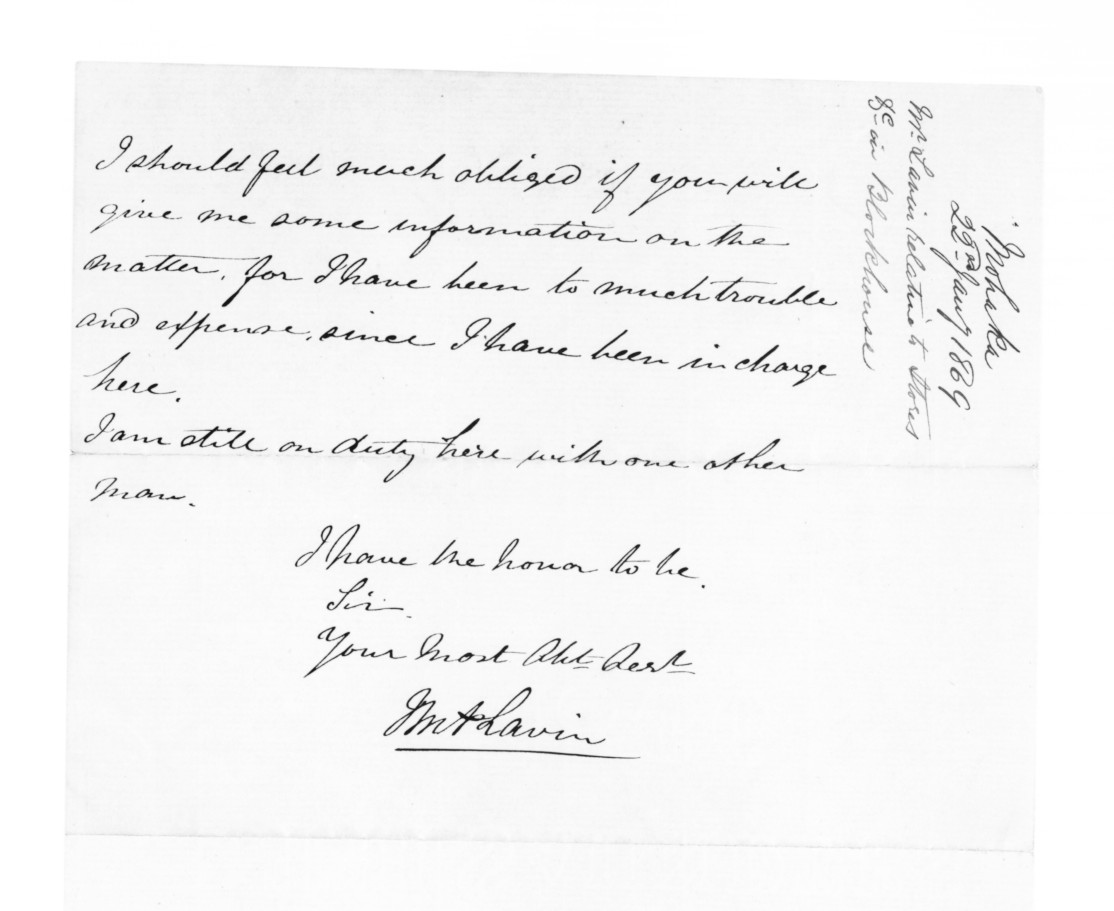 I should feel much obliged if you will
give me some information on the
matter, for I have been to much trouble
and expense, since I have been in charge
here.
I am still on duty here with one other
man.
I have the honor to be.
Sir.
Your Most Obt Servt
Lavin
Mohaka
22nd Jany 1869
Mr Lavin relative to Stores
&c in Blockhouse